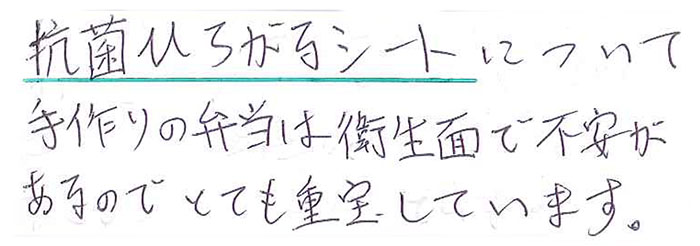 抗菌ひろがるシートについて
手作りの弁当は衛生面で不安が
あるのでとても重宝しています。